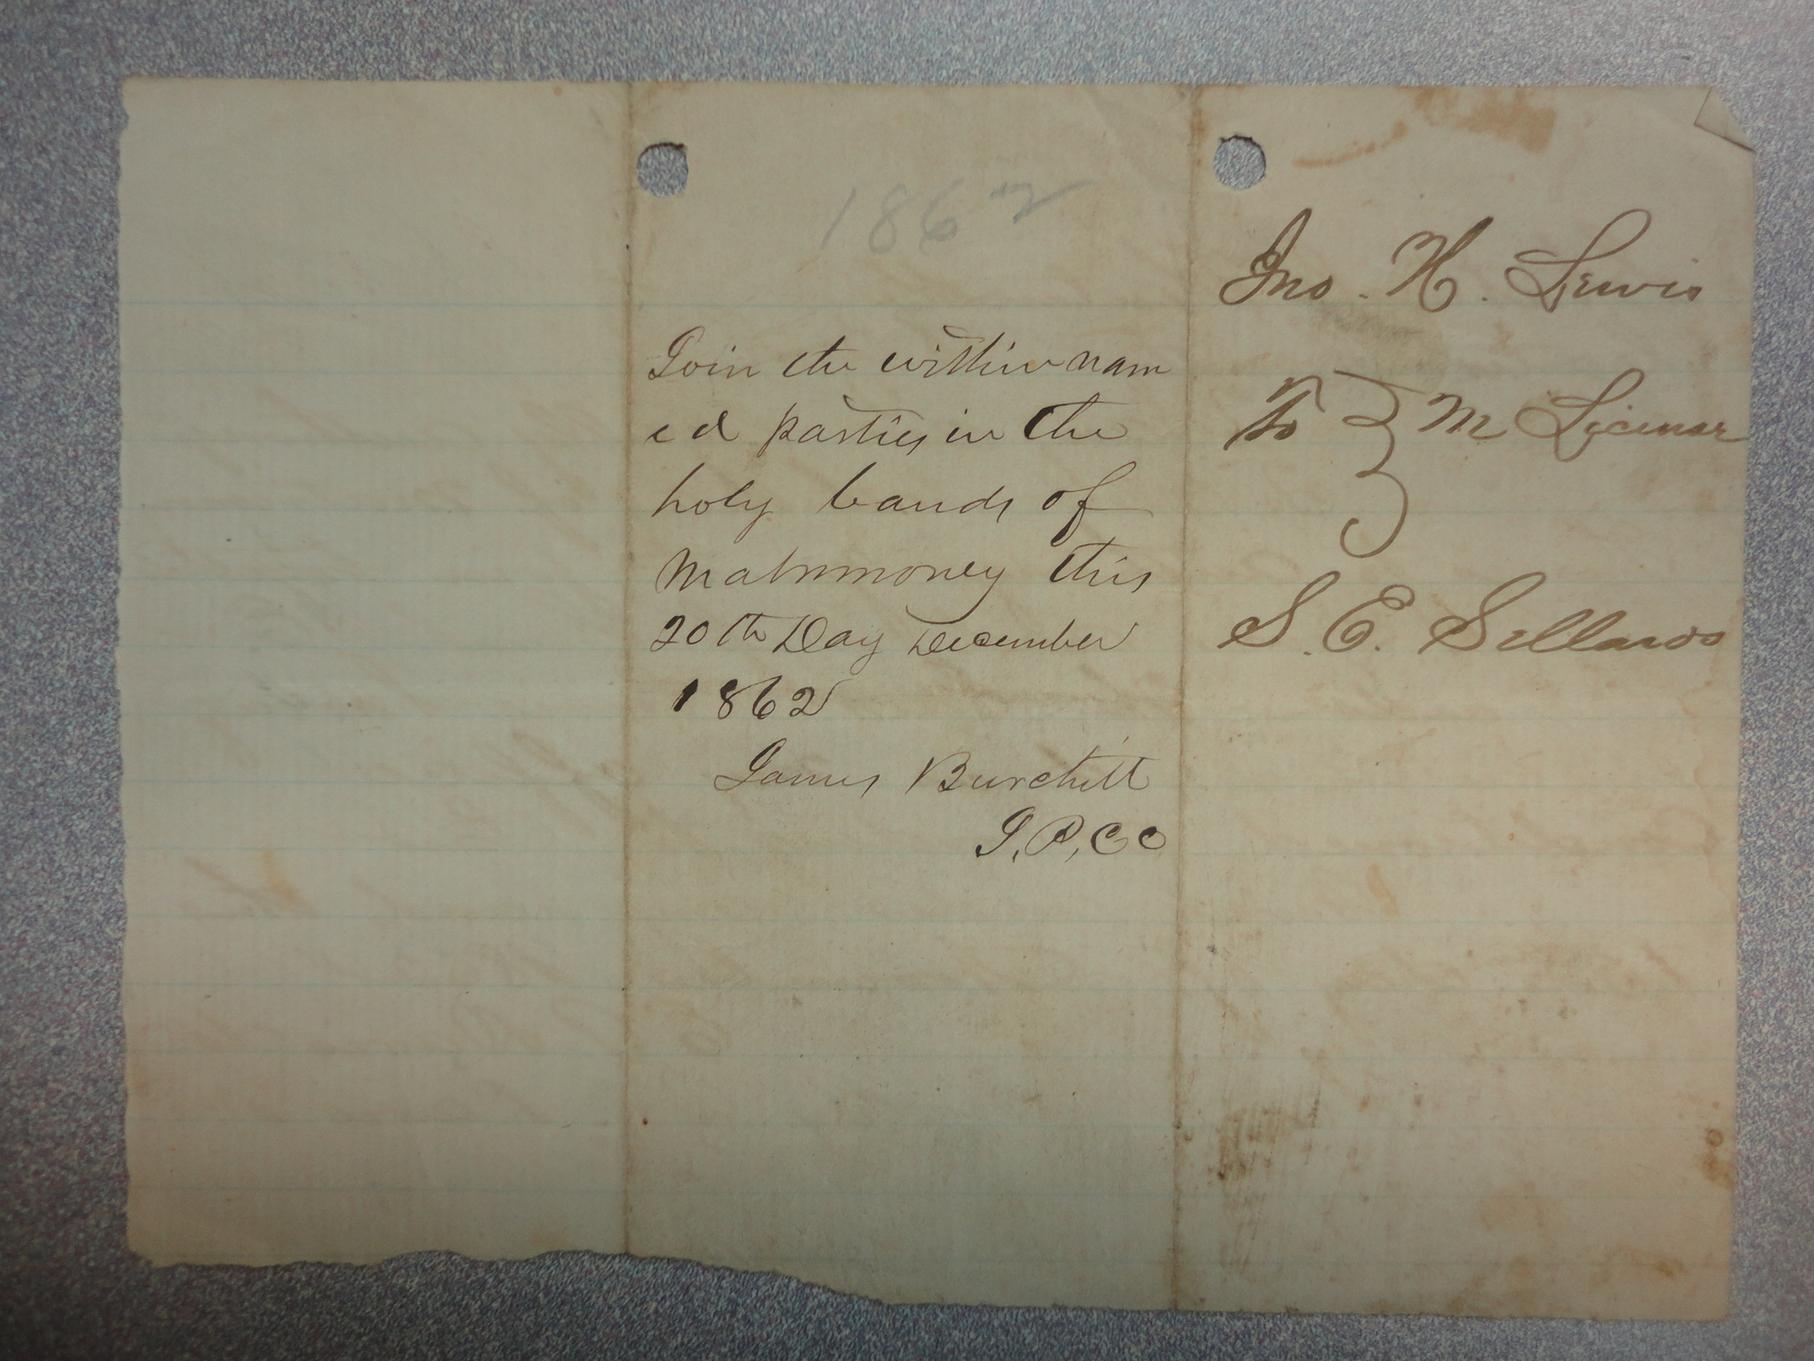 1862
Join the within nam
ed parties in the
holy bands of
Matrimoney this
20th Day December
1862
James Burchett
J. P, C C
Jno. H. Lewis
To } M License
S. E. Sellards